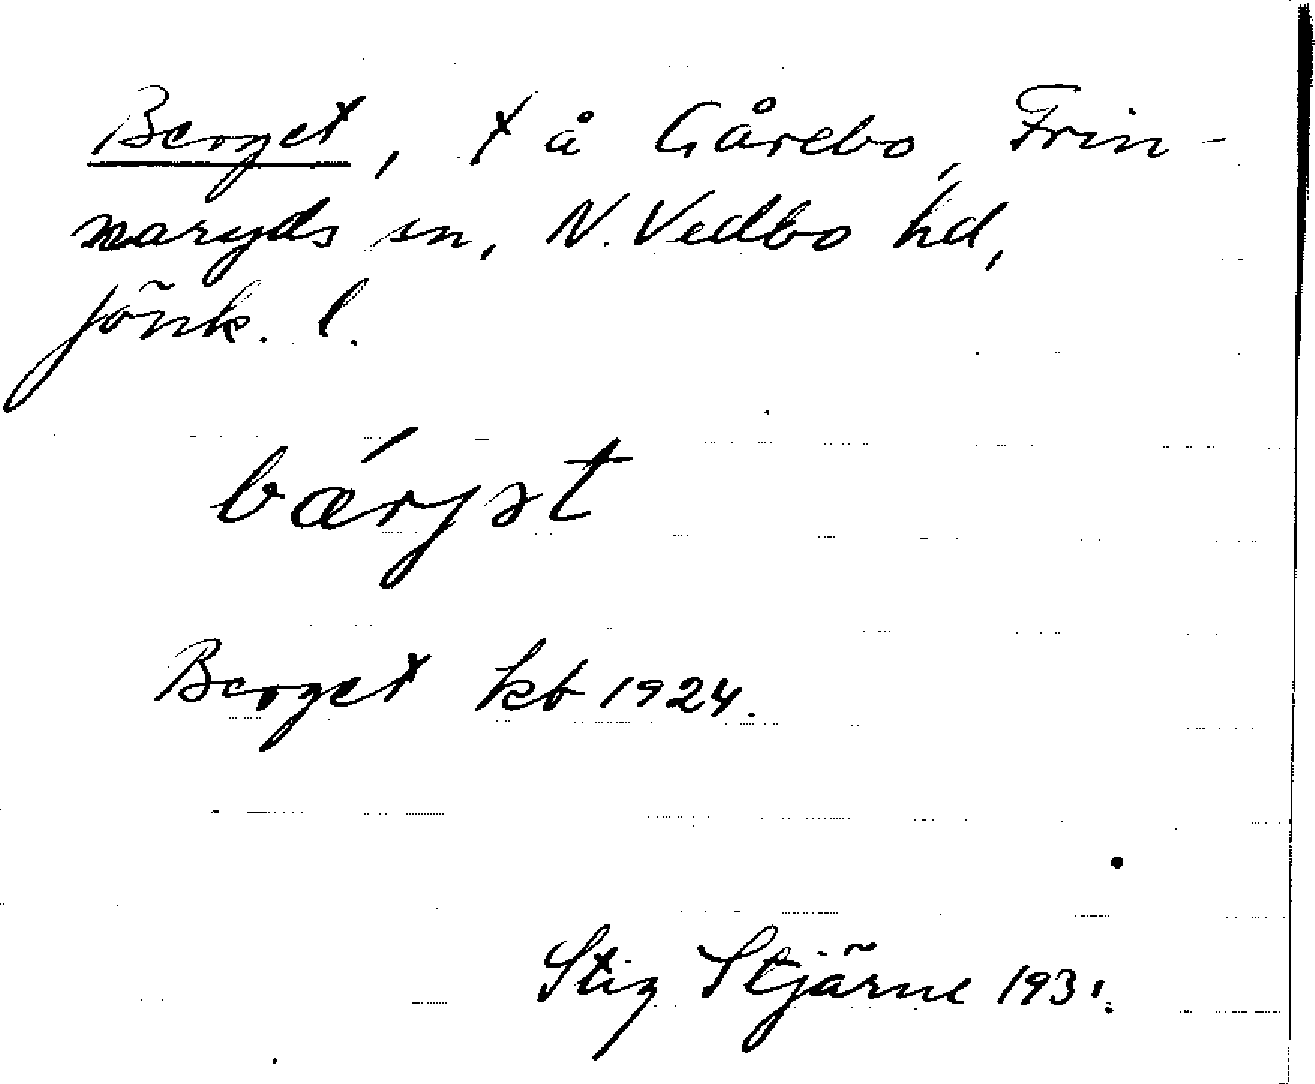 Berget, t å Gårebo, Frin-
naryds sn, N. Vedbo hd,
Jönk. l.
bǽrjət
Berget kb 1924.
Stig Stjärne 1931.